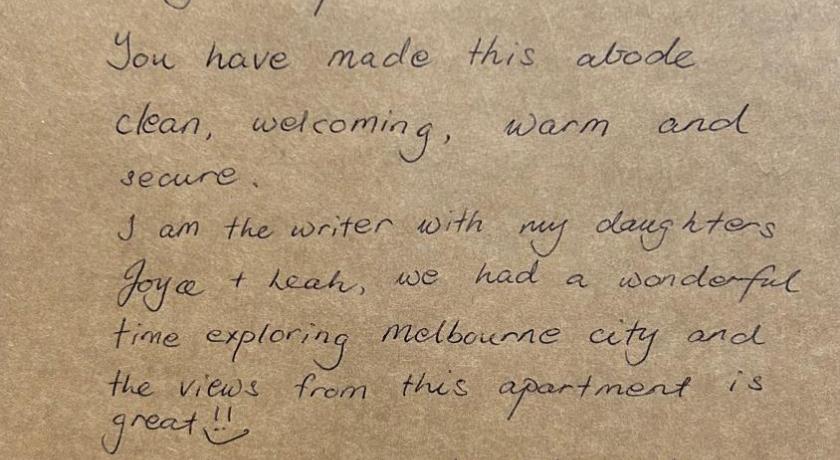 You have made this abode
clean, welcoming, warm and
secure.
I am the writer with my daughters
Joyce + Leah, we had a wonderful
time exploring Melbourne city and
the views from this apartment is
great!!